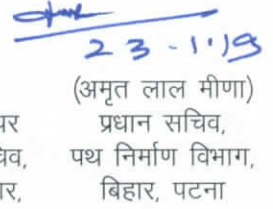 23-1-19
(अमृत लाल मीणा)
पर प्रधान सचिव,
व, पथ निर्माण विभाग,
र, बिहार, पटना